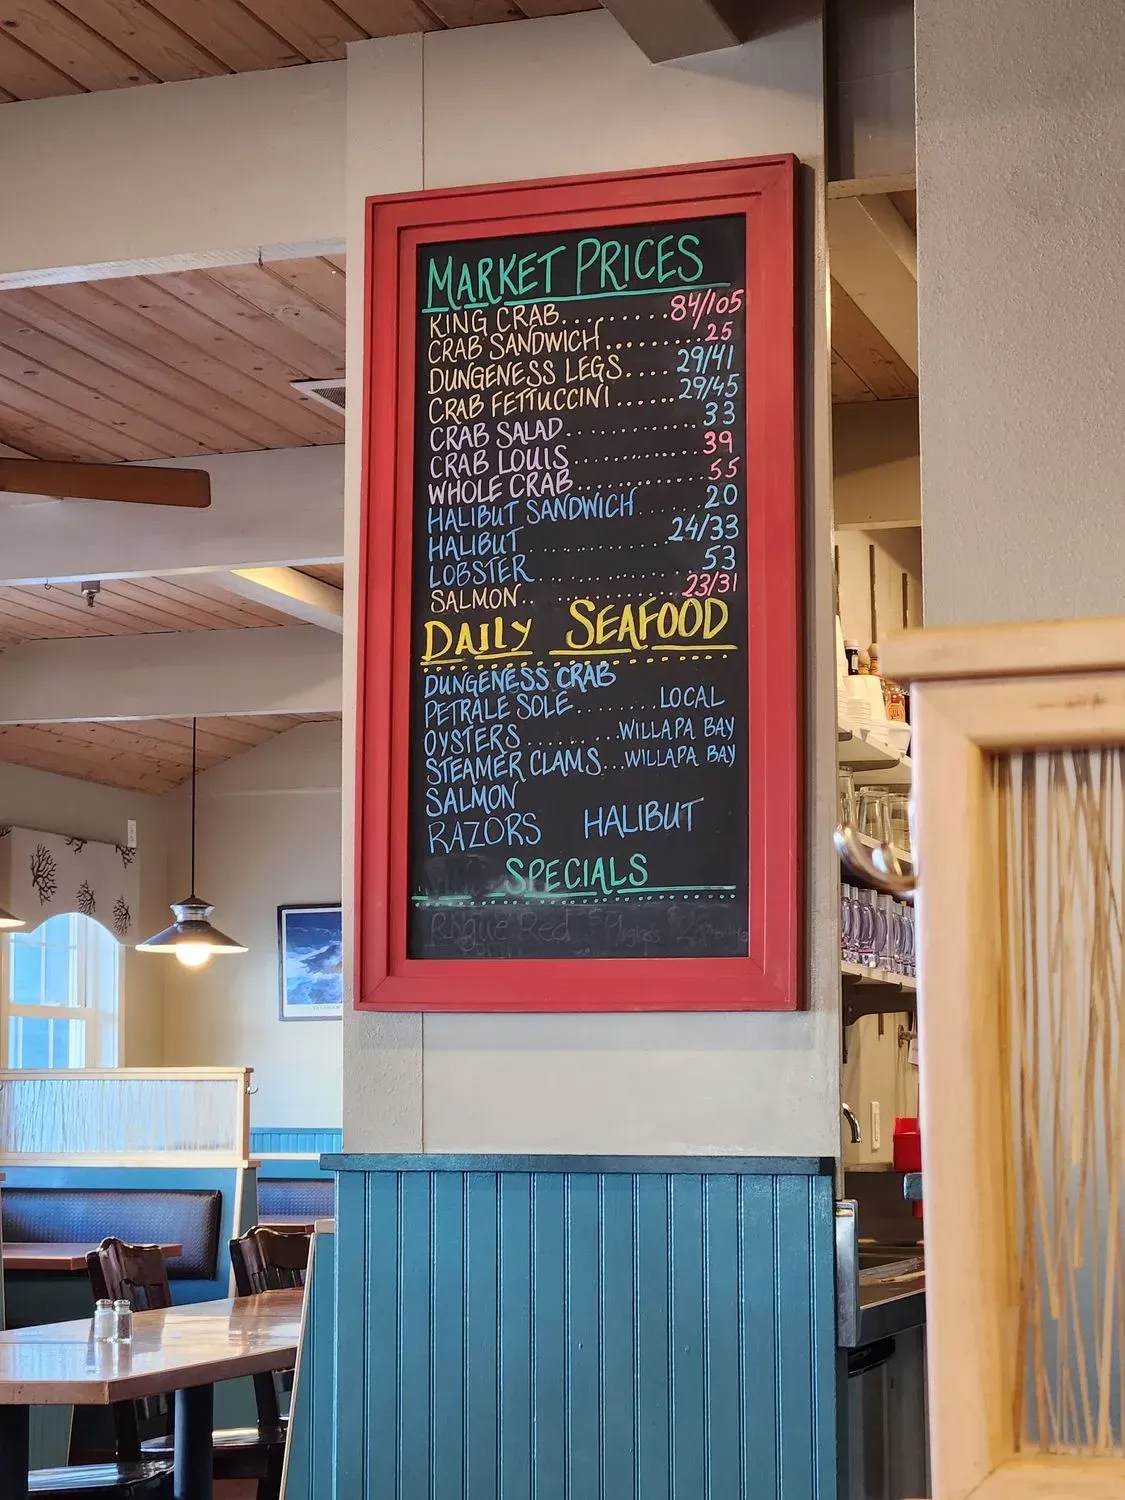 MARKET PRICES
KING CRAB.........84/105
CRAB SANDWICH........25
DUNGENESS LEGS....29/41
CRAB FETTUCCINI......29/45
CRAB SALAD...............33
CRAB LOUIS..............39
WHOLE CRAB.............55
HALIBUT SANDWICH......20
HALIBUT..............24/33
LOBSTER................53
SALMON..............23/31
DAILY SEAFOOD
DUNGENESS CRAB
PETRALE SOLE........LOCAL
OYSTERS.........WILLAPA BAY
STEAMER CLAMS...WILLAPA BAY
SALMON
RAZORS HALIBUT
SPECIALS
Rogue Red